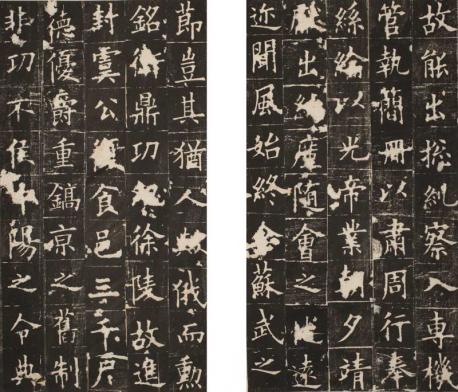 故能出揔糺察入專機
管執簡冊以肅周行奏
絲綸以光帝業朝夕靖
出隨會之遠
迩聞風始終全蘇武之
節豈其猶人歟俄而勳
銘衛鼎功徐陵故進
封虞公食邑三千戶
德優爵重鎬京之舊制
非功不侯陽之令典